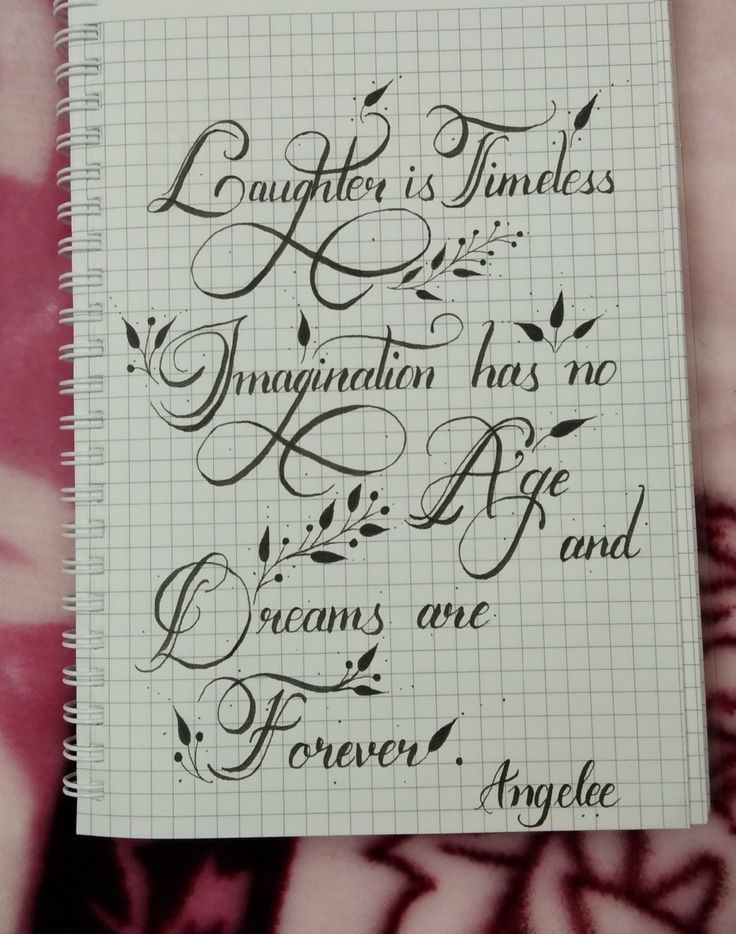 Laughter is Timeless
Imagination has no
Age
and
Dreams are
Forever.
Angelee